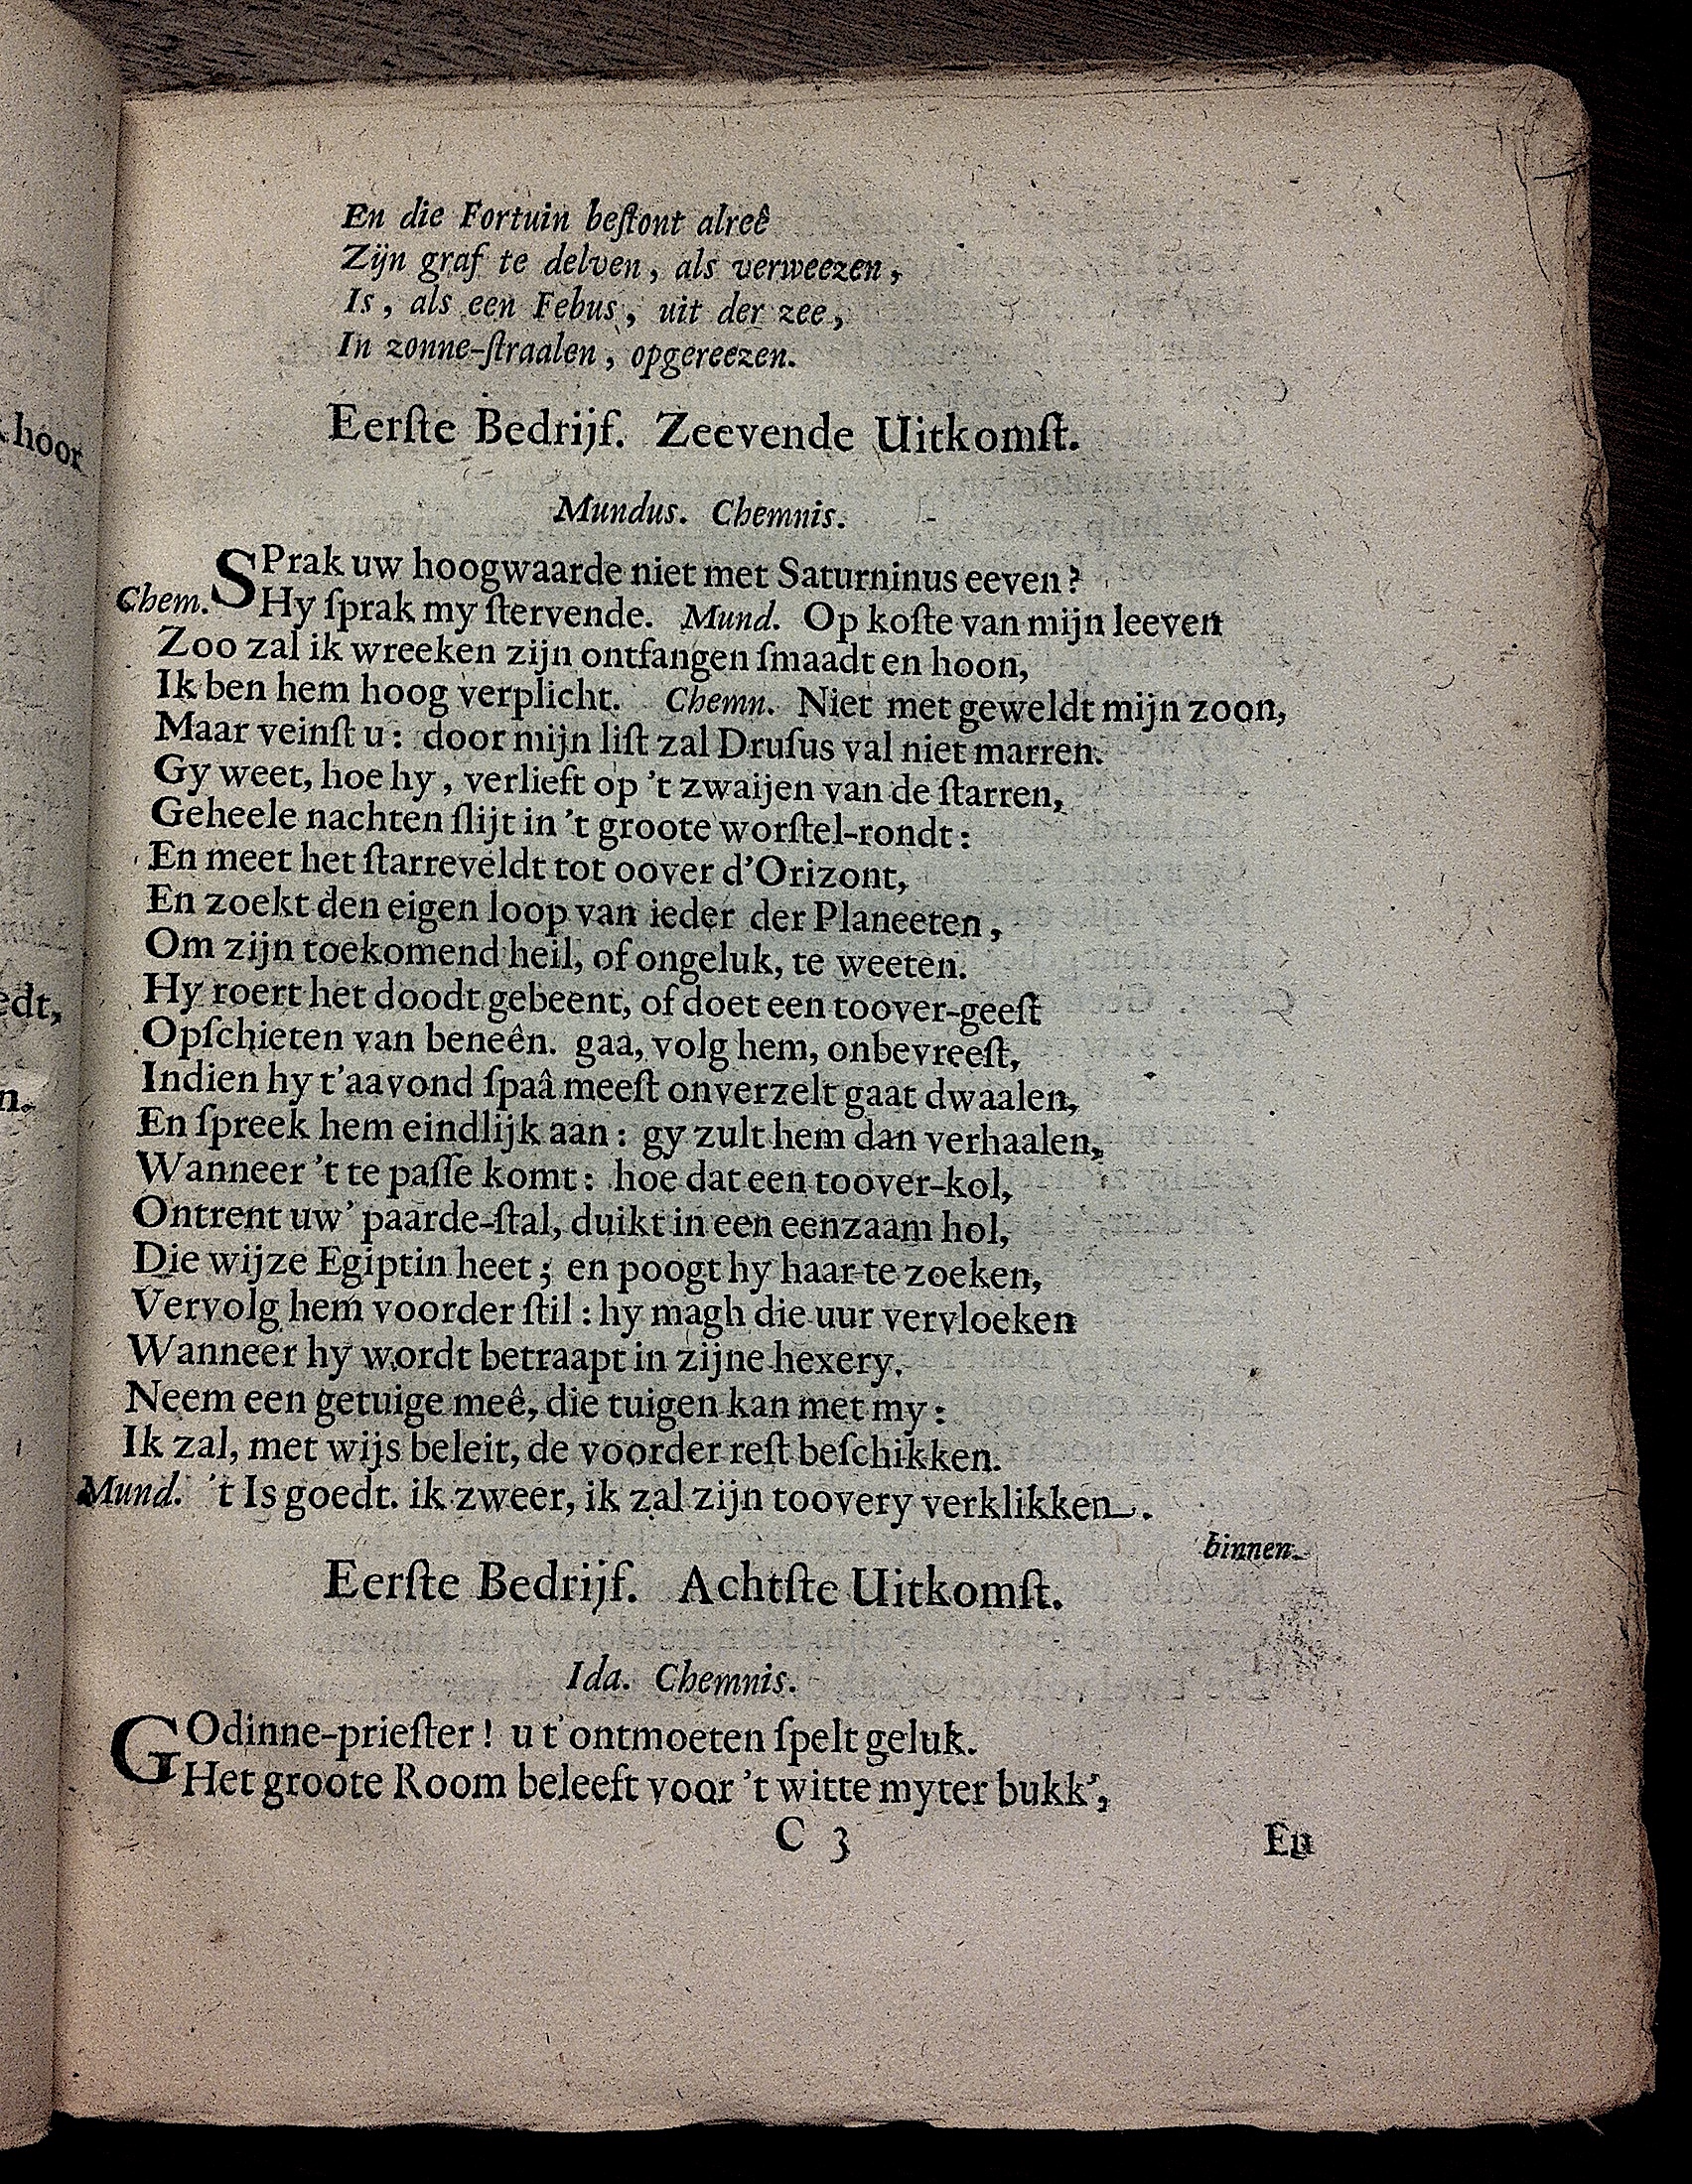 En die Fortuin beſtont alreê
Zijn graf te delven, als verweezen,
Is, als een Febus, uit der zee,
In zonne-ſtraalen, opgereezen.
Eerſte Bedrijf. Zeevende Uitkomſt.
Mundus. Chemnis.
SPrak uw hoogwaarde niet met Saturninus eeven?
Chem. Hy ſprak my ſtervende. Mund. Op koſte van mijn leeven
Zoo zal ik wreeken zijn ontfangen ſmaadt en hoon,
Ik ben hem hoog verplicht. Chemn. Niet met geweldt mijn zoon,
Maar veinſt u: door mijn liſt zal Druſus val niet marren.
Gy weet, hoe hy, verlieft op 't zwaijen van de ſtarren,
Geheele nachten ſlijt in 't groote worſtel-rondt:
En meet het ſtarreveldt tot oover d'Orizont,
En zoekt den eigen loop van ieder der Planeeten,
Om zijn toekomend heil, of ongeluk, te weeten.
Hy roert het doodt gebeent, of doet een toover-geeſt
Opſchieten van beneên. gaa, volg hem, onbevreeſt,
Indien hy t'aavond ſpaâ meeſt onverzelt gaat dwaalen,
En ſpreek hem eindlijk aan: gy zult hem dan verhaalen,
Wanneer 't te paſſe komt: hoe dat een toover-kol,
Ontrent uw' paarde-ſtal, duikt in een eenzaam hol,
Die wijze Egiptin heet; en poogt hy haar te zoeken,
Vervolg hem voorder ſtil: hy magh die uur vervloeken
Wanneer hy wordt betraapt in zijne hexery.
Neem een getuige meê, die tuigen kan met my:
Ik zal, met wijs beleit, de voorder reſt beſchikken.
Mund. 't Is goedt. ik zweer, ik zal zijn toovery verklikken.
binnen.
Eerſte Bedrijf. Achtſte Uitkomſt.
Ida. Chemnis.
GOdinne-prieſter! u t'ontmoeten ſpelt geluk.
Het groote Room beleeft voor 't witte myter bukk',
C 3
En
hoor
edt,
n.